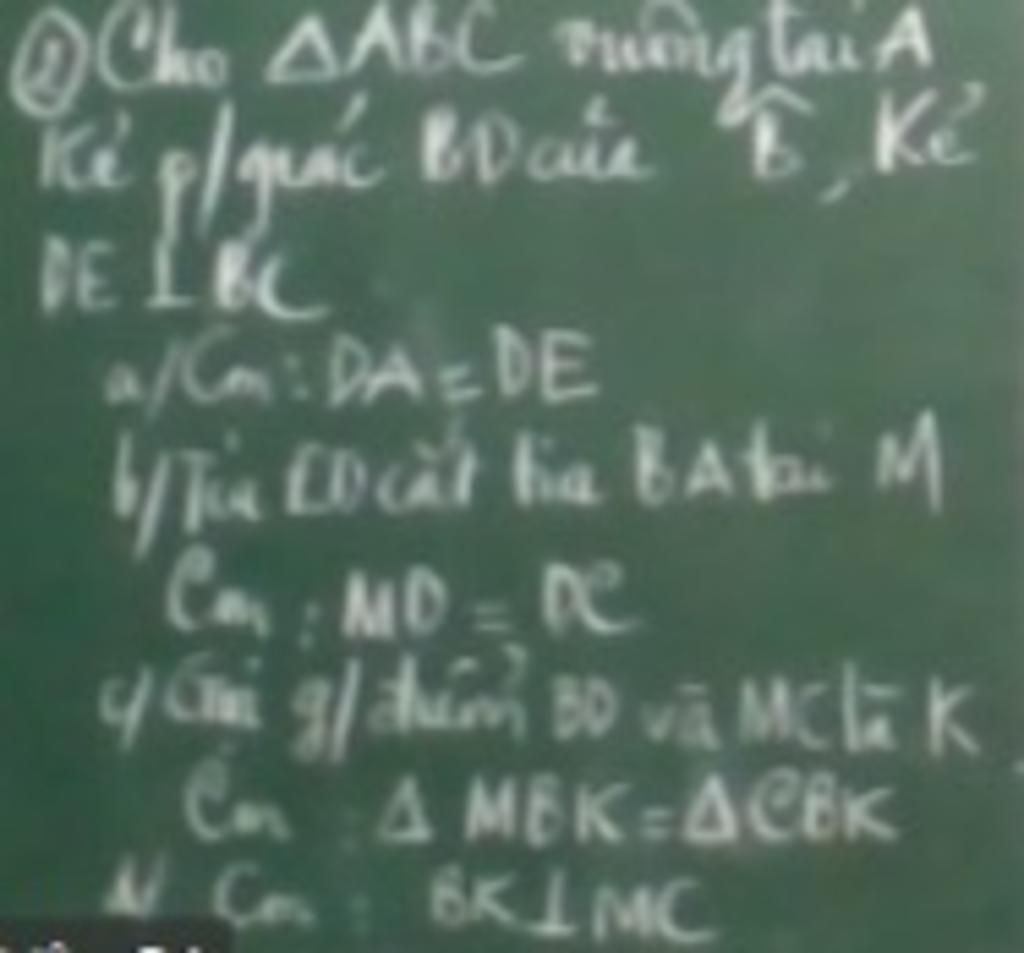 ② Cho △ABC vuông tại A
Kẻ p/giác BD của B̂, Kẻ
DE ⊥ BC
a/ Cm: DA = DE
b/ Tia ED cắt tia BA tại M
Cm: MD = DC
c/ Gọi g/điểm BD và MC là K
Cm: △ MBK = △CBK
d/ Cm: BK ⊥ MC